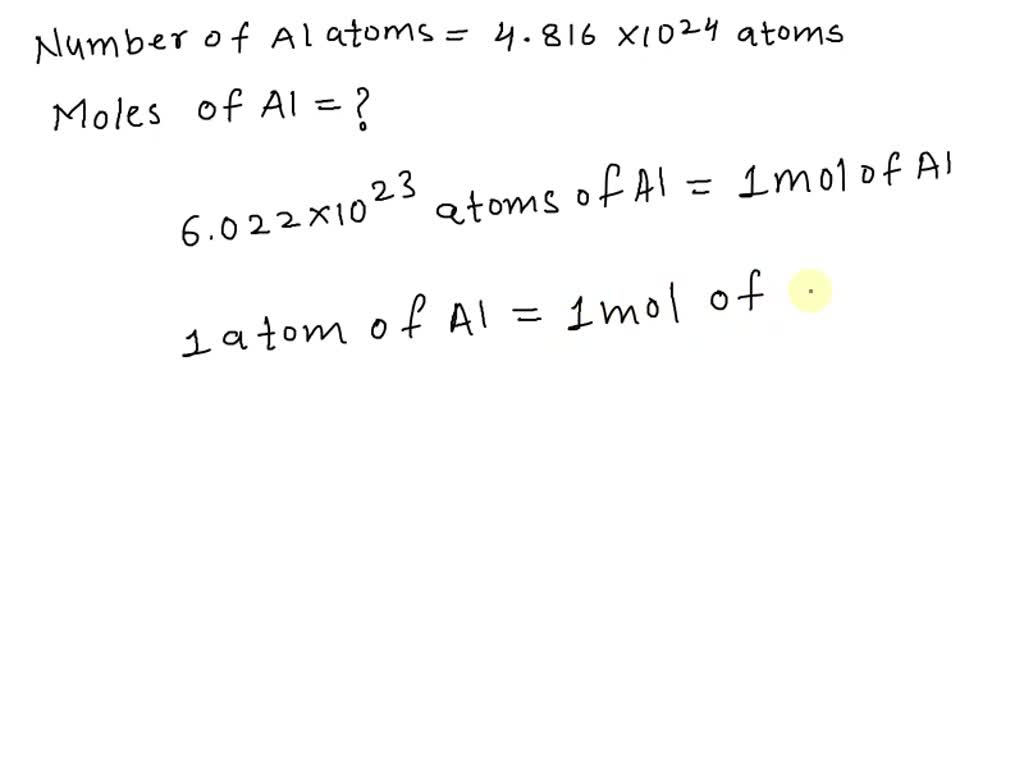 Number of Al atoms = 4.816 ×1024 atoms
Moles of Al = ?
6.022×10²³ atoms of Al = 1mol of Al
1 atom of Al = 1mol of